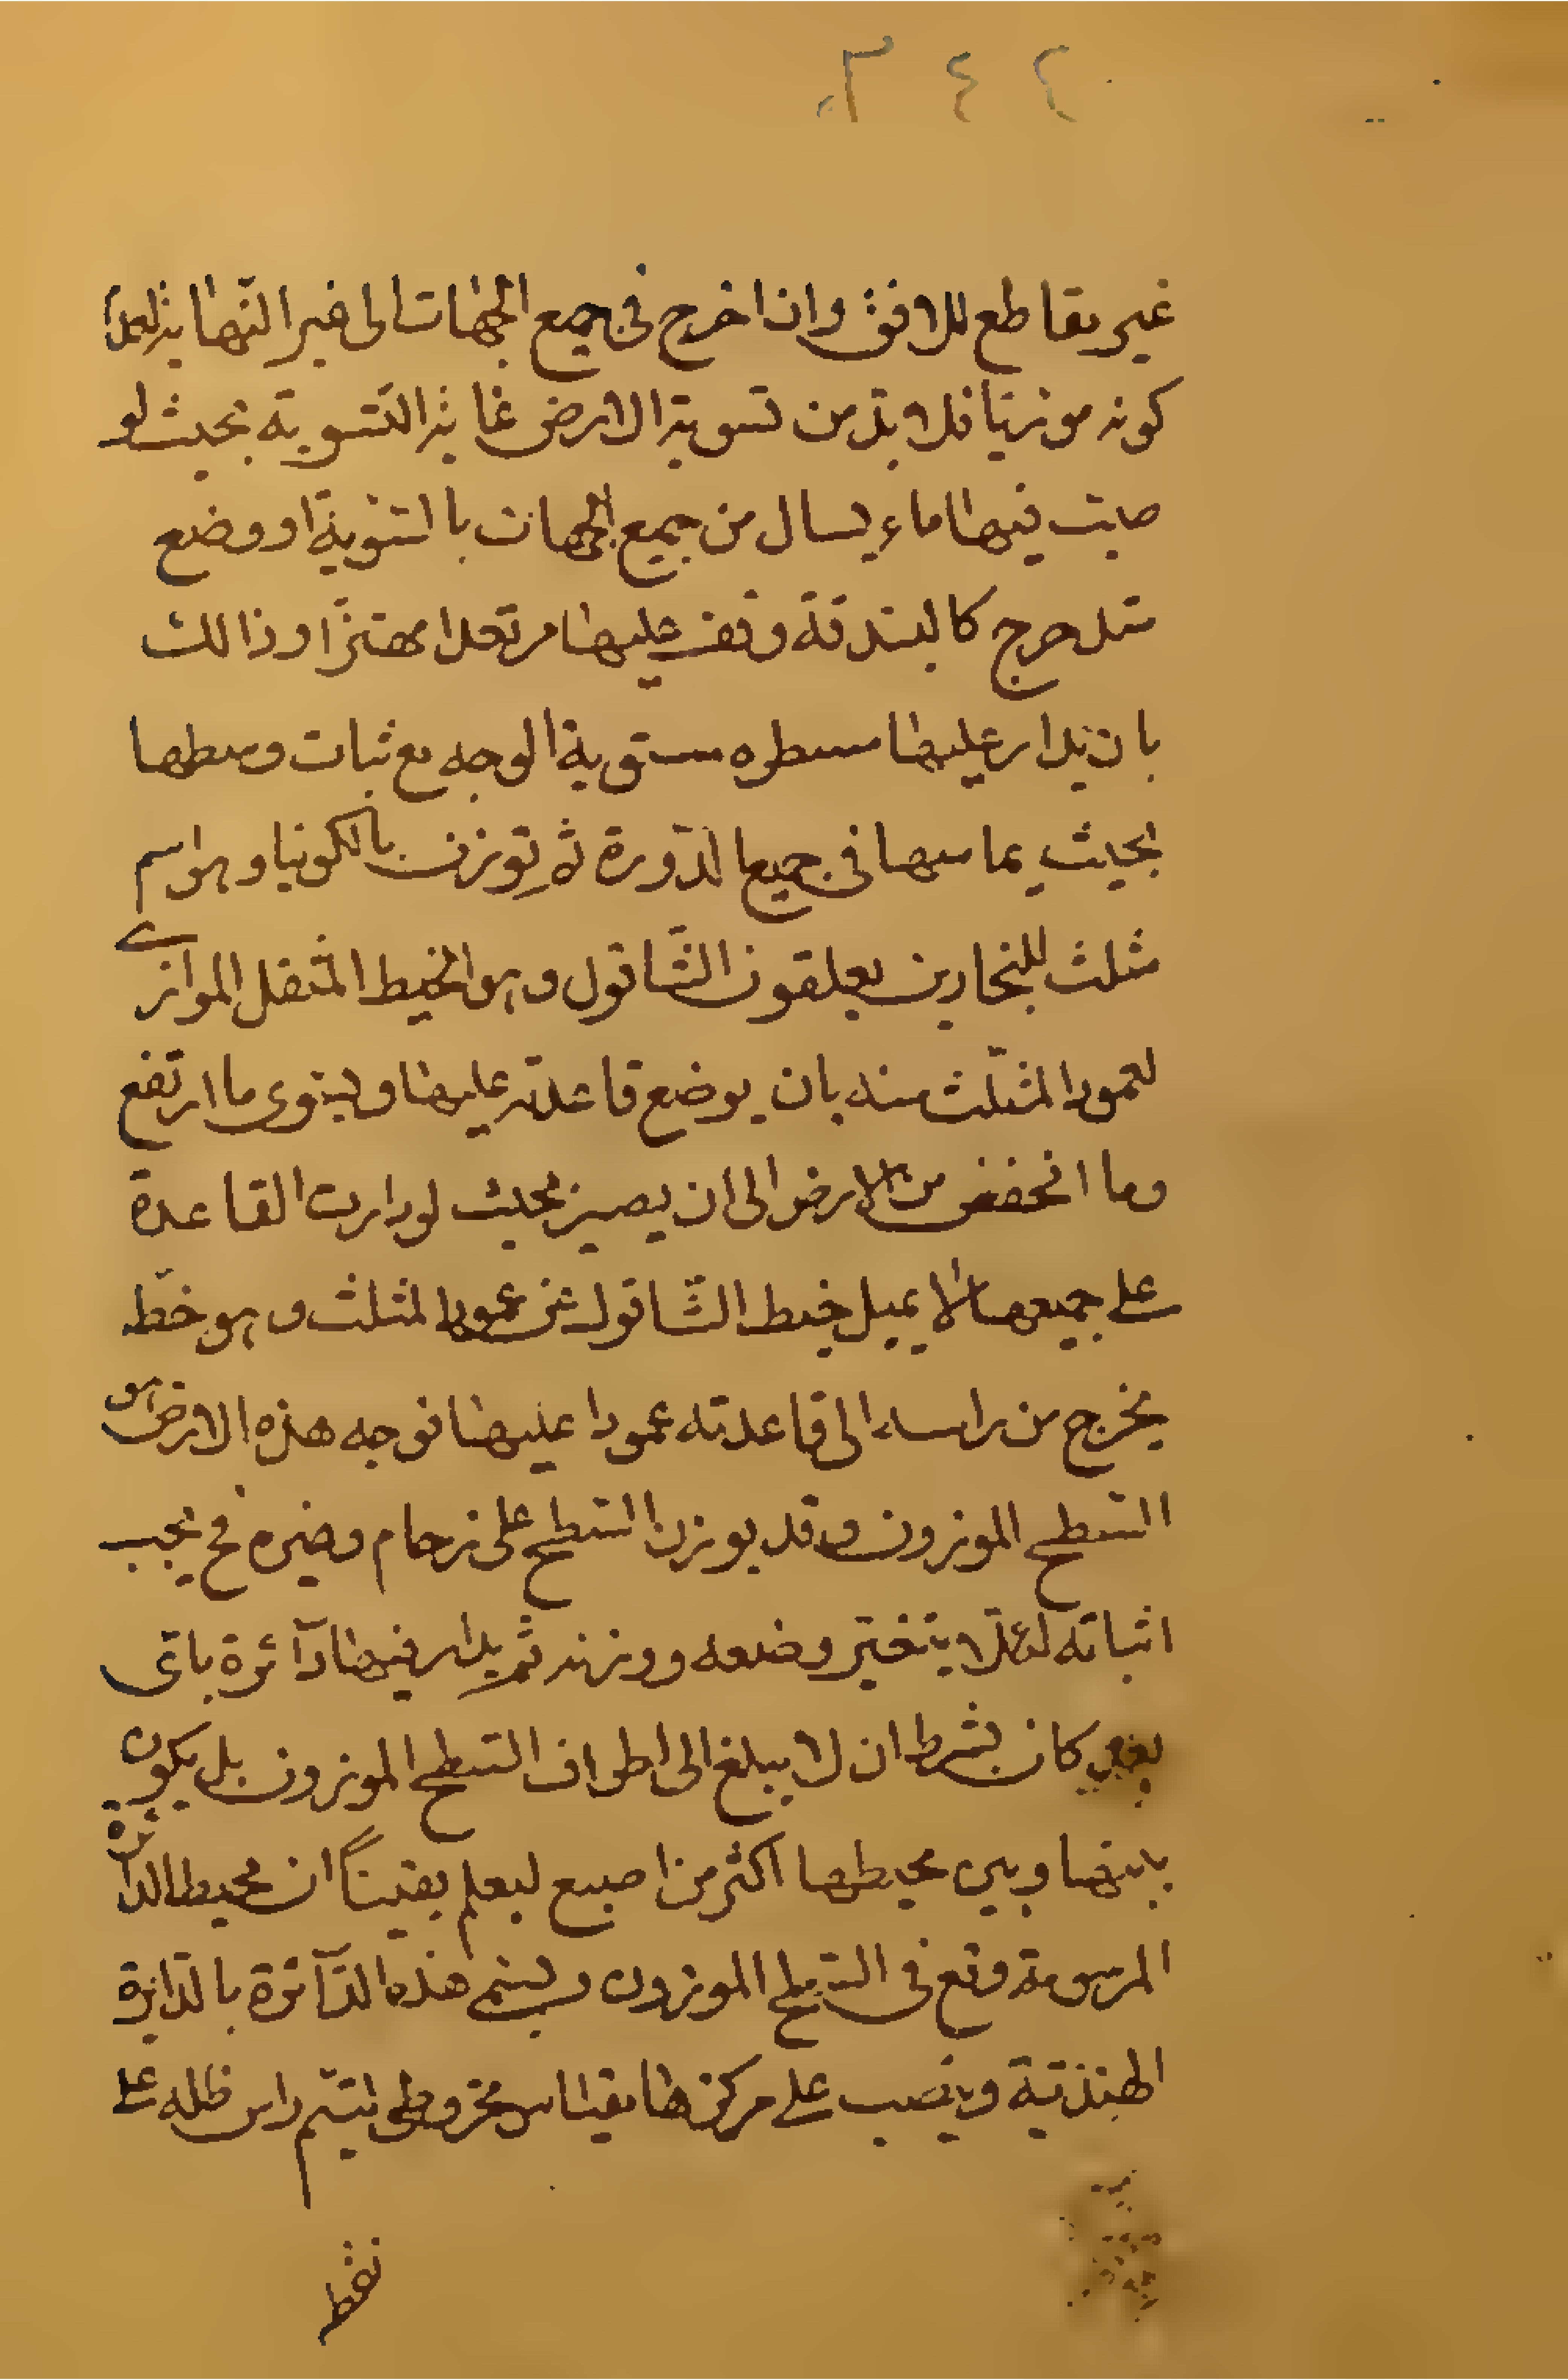 ٢٤٣
غير مقاطع للافق وان اخرج فى جميع الجهات الى غير النهاية لعدم
كونه موزنيا فلا بد من تسوية الارض غاية التسوية بحيث لو
صبت فيها ماء يسال من جميع الجهات بالتسوية او وضع
متدحرج كالبندقة وقف عليها مرتعدا مهتزا وذالك
بان يدار عليها مسطره مستوية الوجه مع ثبات وسطها
بحيث يماسها فى جميع الدورة ثم توزن بالكونيا وهو اسم
مثلث للنجارين يعلقون الشاقول وهو الخيط المثقل الموازى
لعمود المثلث منه بان يوضع قاعدته عليها ويسوى ما ارتفع
وما انخفض من الارض الى ان يصير بحيث لو دارت القاعدة
على جميعها لا يميل خيط الشاقول عن عمود المثلث وهو خط
يخرج من راسه الى قاعدته عمودا عليها فوجه هذه الارض هو
السطح الموزون وقد يوزن السطح على زحام وغيره فح يجب
اثباته لئلا يتغير وضعه ووزنه ثم يدار فيها دآئرة باى
بعد كان بشرط ان لا يبلغ الى اطراف السطح الموزون بل يكون
بينها وبين محيطها اكثر من اصبع ليعلم يقيناً ان محيط الدائرة
المرسومة وقع فى السطح الموزون ويسمى هذه الدآئرة بالدائرة
الهندية وينصب على مركزها مقياس مخروطى ليتم راس ظله على
نقط